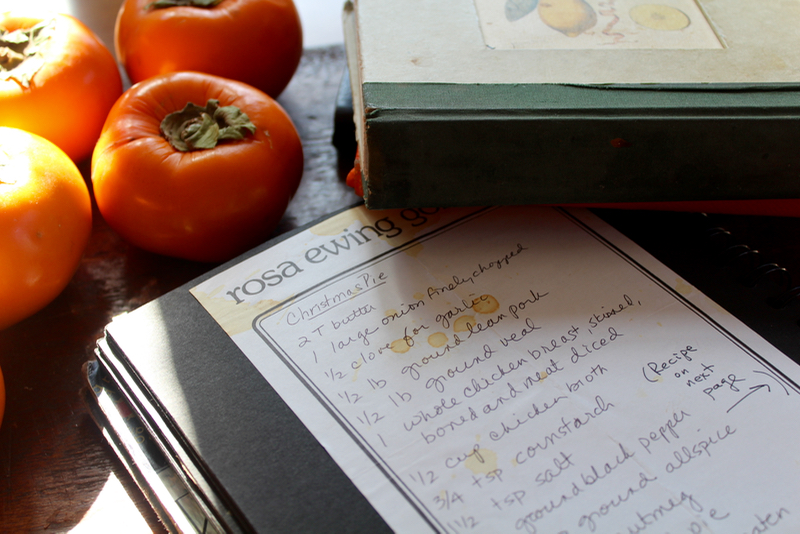 rosa ewing
Christmas Pie
2 T butter
1 large onion finely chopped
1/2 clove for garlic
1/2 lb ground lean pork
1/2 lb ground veal
1 whole chicken breast, skinned,
boned and meat diced
1/2 cup chicken broth
3/4 tsp cornstarch
1 1/2 tsp salt
ground black pepper
ground allspice
nutmeg
(Recipe
on
next
page)